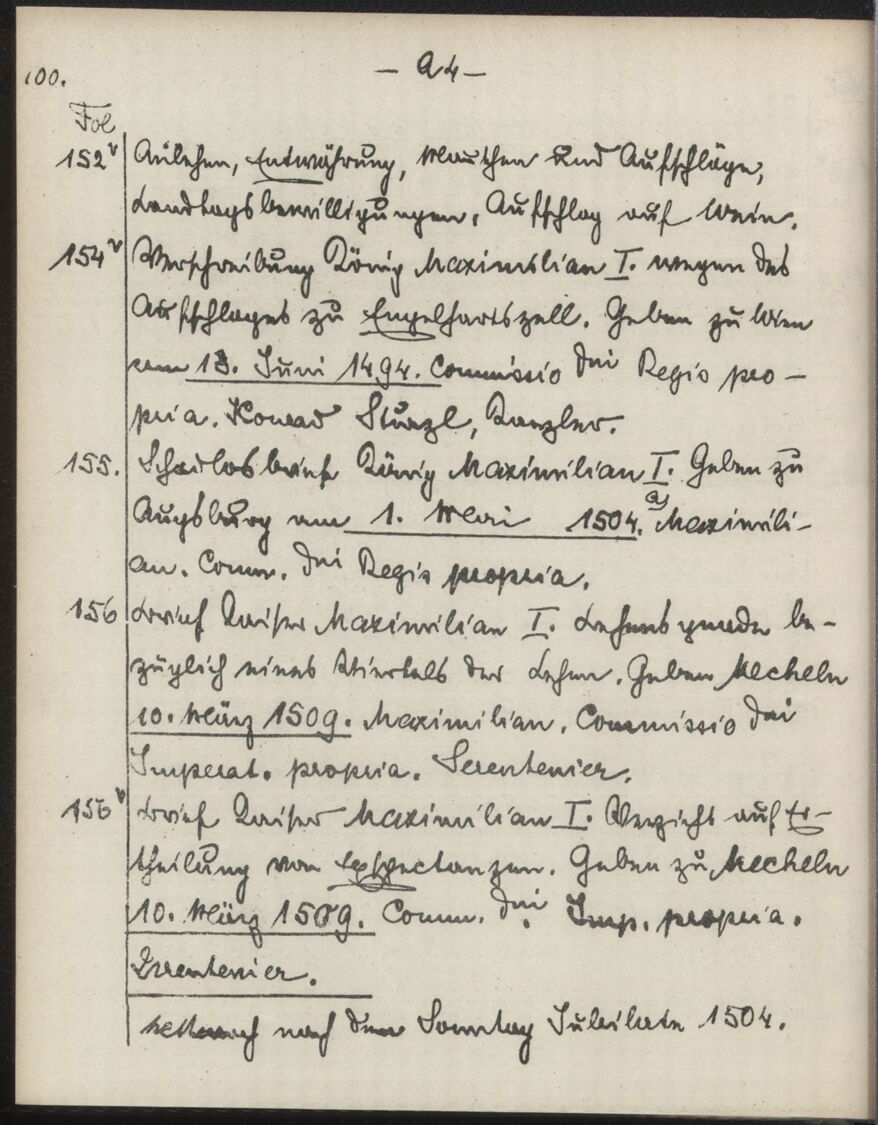 100.
– A 4 –
Fol
152v Anlehen, Entwährung, Mauthen und Aufschläge,
Landtagsbewilligungen, Aufschlag auf Wein.
154v Verschreibung König Maximilian I. wegen des
Aufschlages zu Engelhartszell. Geben zu Wien
am 13. Juni 1494. Commissio dni Regis pro-
pria. Konrad Sturzl, Kanzler.
155. Schadlosbrief König Maximilian I. Geben zu
Augsburg am 1. Mai 1504. a) Maximili-
an. Comm. dni Regis propria.
156 Brief Kaiser Maximilian I. Lehensgnade be-
züglich eines Viertels der Lehen. Geben Mecheln
10. März 1509. Maximilian. Commissio dni
Imperat. propria. Serenteiner.
156v Brief Kaiser Maximilian I. Verzicht auf Er-
theilung von Exspectanzen. Geben zu Mecheln
10. März 1509. Comm. dni Imp. propria.
Serenteiner.
nach dem Sonntag Jubilate 1504.